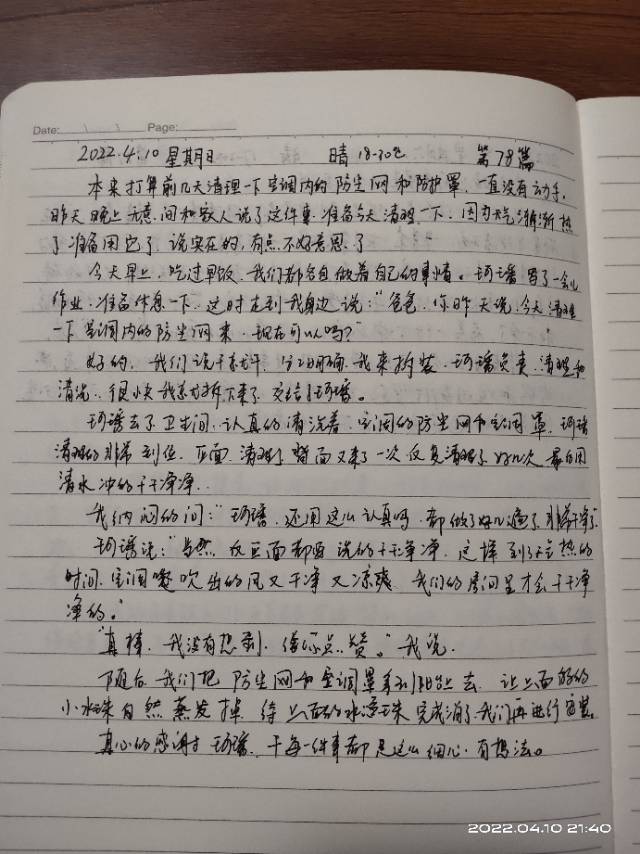 Date: Page:
2022.4.10 星期日 晴 18-30℃ 第78篇
本来打算前几天清理一下空调内的防尘网和防护罩,一直没有动手。
昨天晚上无意间和家人说了这件事,准备今天清理一下,因为天气渐渐热
了准备用它了,说实在的,有点不好意思了
今天早上,吃过早饭,我们都各自做着自己的事情。珂瑶写了一会儿
作业,准备休息一下,这时走到我身边说:“爸爸,你昨天说,今天清理
一下空调内的防尘网来,现在可以吗?”
好的,我们说干就干,分工明确,我来拆装,珂瑶负责清理和
清洗,很快我就拆下来了,交给了珂瑶。
珂瑶去了卫生间,认真的清洗着空调的防尘网和空调罩,珂瑶
清理的非常到位,正面清理了背面又来了一次,反复清理了好几次,最后用
清水冲的干干净净..
我纳闷的问:“珂瑶,还用这么认真吗,都做了好几遍了,非常干净了”
珂瑶说:“当然,反正面都要洗的干干净净,这样到了炎热的
时间,空调吹出的风又干净又凉爽,我们的房间里才会干干净
净的。”
“真棒,我没有想到,给你点赞。”我说.
随后我们把防尘网和空调罩拿到阳台上去,让上面的
小水珠自然蒸发掉,待上面的水珠完成消了,我们再进行安装。
真心的感谢珂瑶,干每一件事都是这么细心,有想法。
2022.04.10 21:40